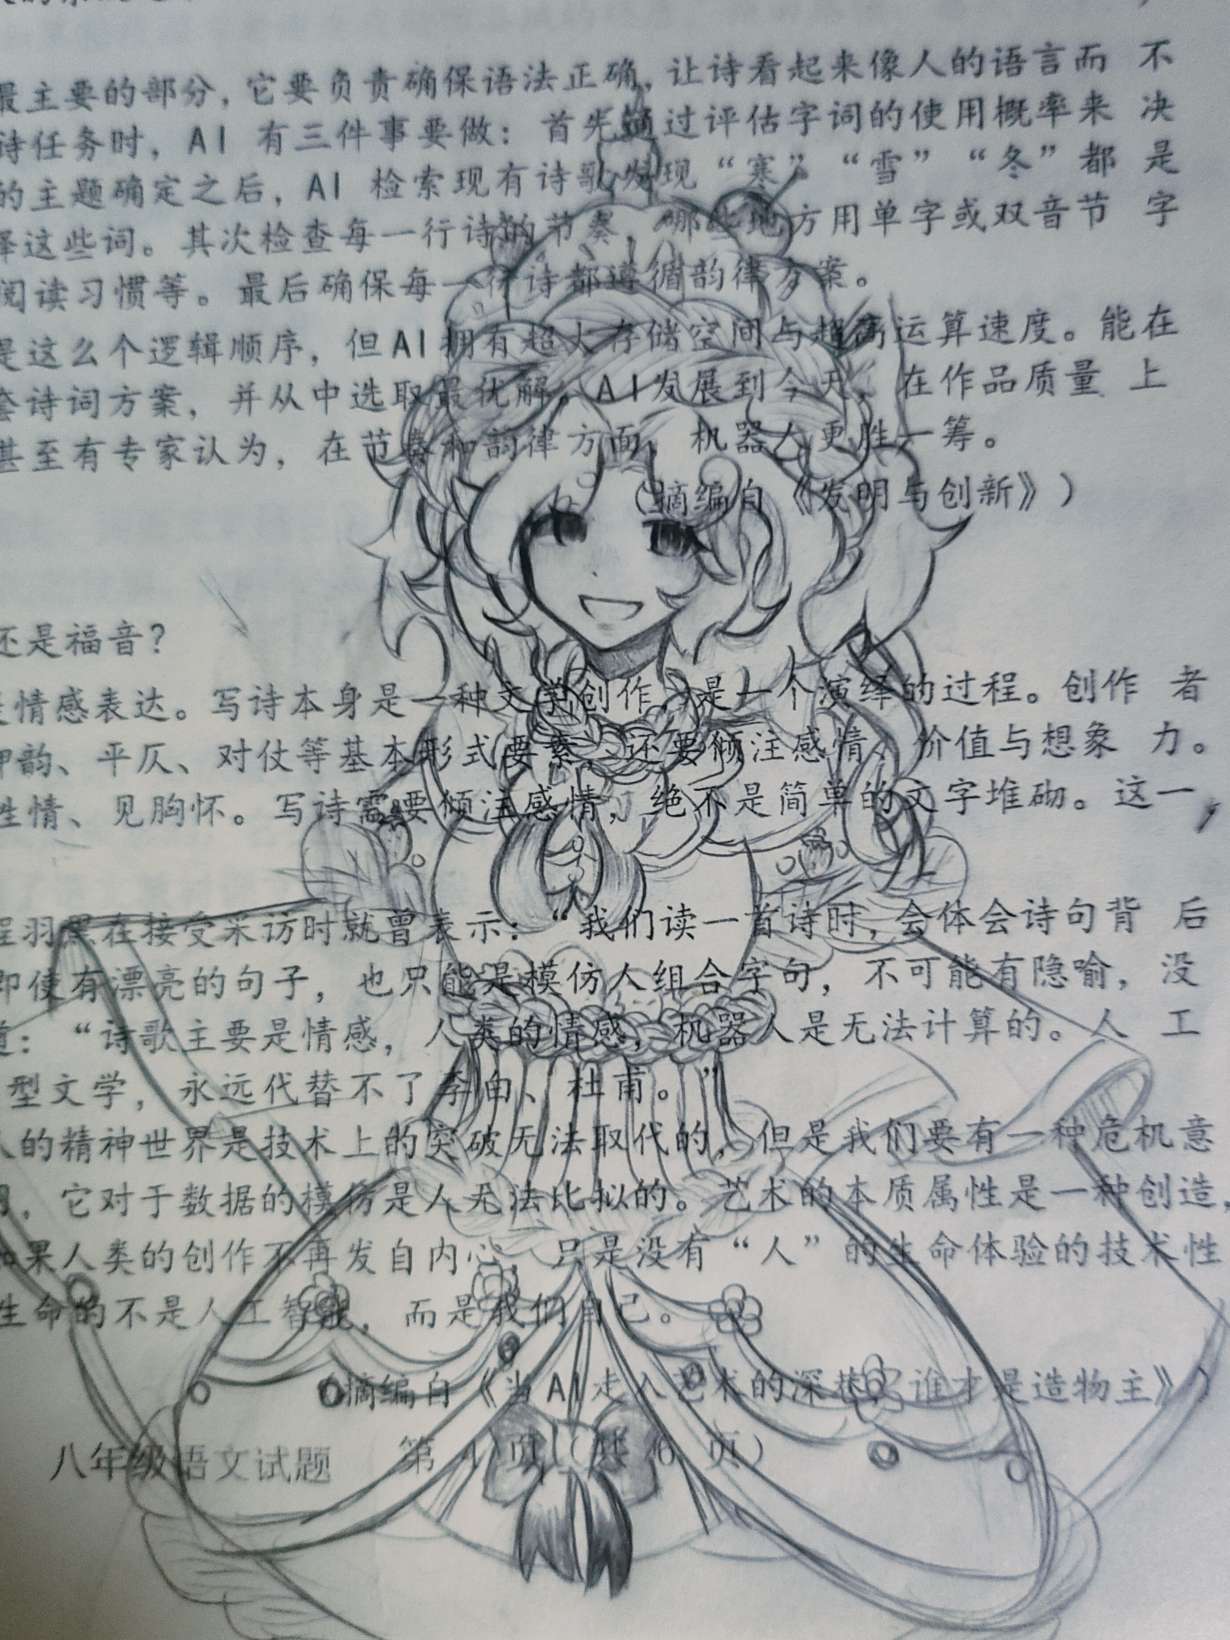 最主要的部分，它要负责确保语法正确，让诗看起来像人的语言而 不
诗任务时，AI 有三件事要做：首先通过评估字词的使用概率来 决
的主题确定之后，AI 检索现有诗歌发现“寒”“雪”“冬”都 是
择这些词。其次检查每一行诗的节奏，哪些地方用单字或双音节 字
阅读习惯等。最后确保每一行诗都遵循韵律方案。
是这么个逻辑顺序，但AI拥有超大存储空间与超高运算速度。能在
套诗词方案，并从中选取最优解。AI发展到今天，在作品质量 上
甚至有专家认为，在节奏和韵律方面，机器人更胜一筹。
（摘编自《发明与创新》）
还是福音？
是情感表达。写诗本身是一种文学创作，是一个演绎的过程。创作 者
押韵、平仄、对仗等基本形式要素，还要倾注感情、价值与想象 力。
性情、见胸怀。写诗需要倾注感情，绝不是简单的文字堆砌。这一，
程羽黑在接受采访时就曾表示：“我们读一首诗时，会体会诗句背 后
即使有漂亮的句子，也只能是模仿人组合字句，不可能有隐喻，没
道：“诗歌主要是情感，人类的情感，机器人是无法计算的。人 工
型文学，永远代替不了李白、杜甫。”
人的精神世界是技术上的突破无法取代的，但是我们要有一种危机意
明，它对于数据的模仿是人无法比拟的。艺术的本质属性是一种创造，
如果人类的创作不再发自内心，只是没有“人”的生命体验的技术性
生命的不是人工智能，而是我们自己。
（摘编自《当AI走入艺术的深巷，谁才是造物主》）
八年级语文试题 第 4 页（共 6 页）